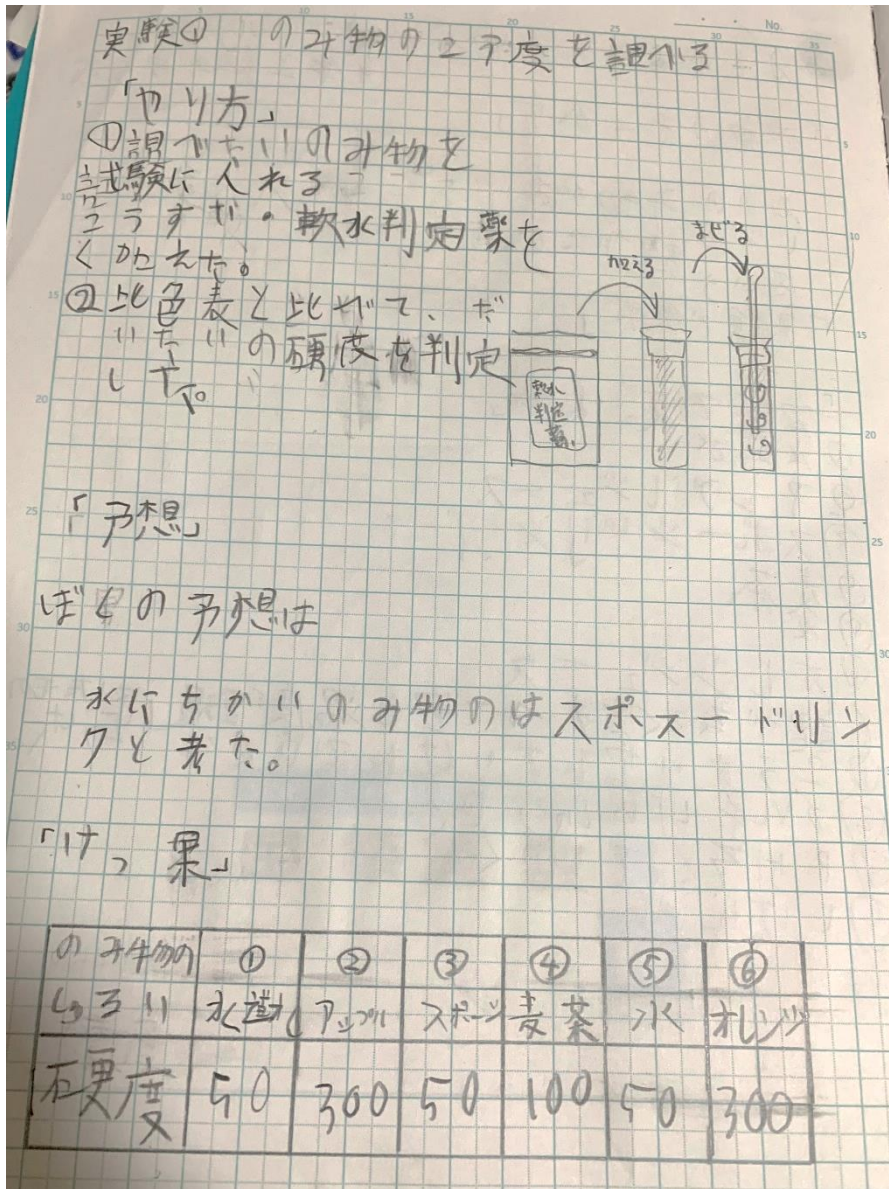 実験① のみ物のコウ度を調べる
「やり方」
①調べたいのみ物を
試験に入れる
コうすだ・軟水判定薬を
くわえた。
②比色表と比べて、だ
いたいの硬度を判定
します。
加える
まぜる
軟水
判定
薬
「予想」
ぼくの予想は
水にちかいのみ物のはスポスードリン
クと考た。
「けっ果」
のみ物の ① ② ③ ④ ⑤ ⑥
しゅるい 水道水 アップル スポーツ 麦茶 水 オレンジ
硬度 50 300 50 100 50 300